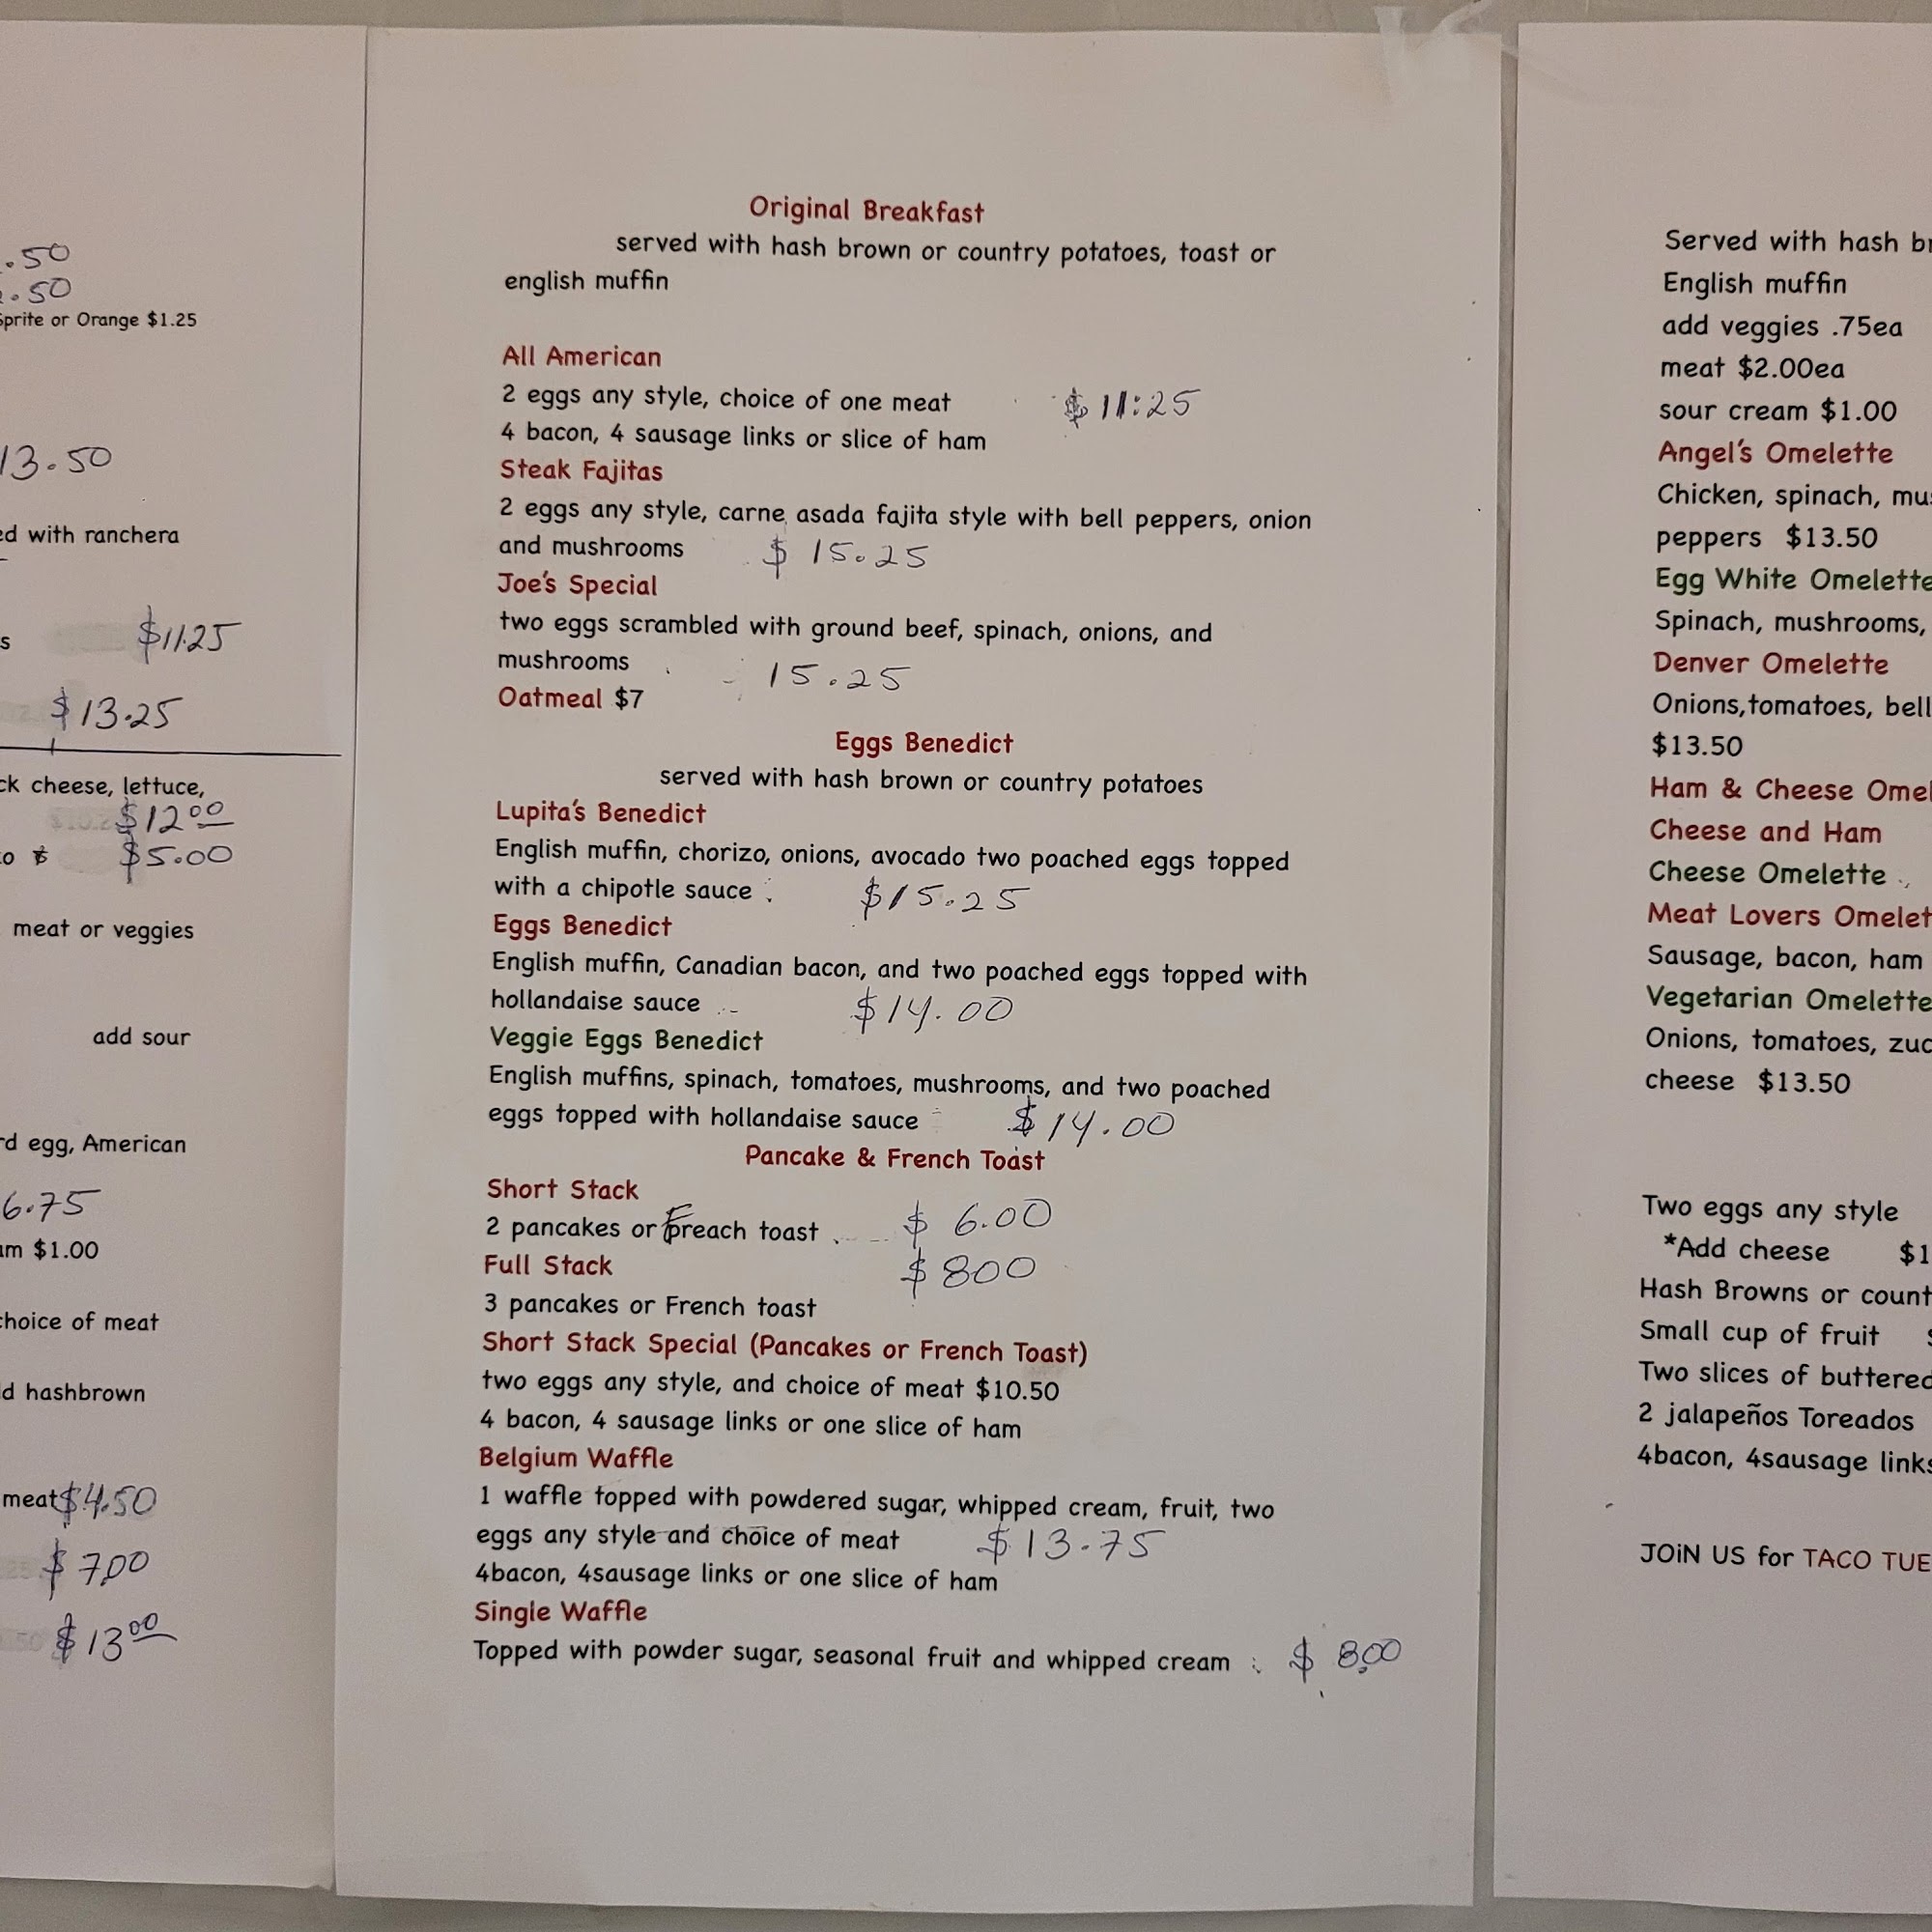 .50
.50
Sprite or Orange $1.25
13.50
ed with ranchera
s $11.25
$13.25
ck cheese, lettuce,
$12.00
to $5.00
meat or veggies
add sour
rd egg, American
6.75
am $1.00
choice of meat
d hashbrown
meat $4.50
$7.00
$13.00
Original Breakfast
served with hash brown or country potatoes, toast or
english muffin
All American
2 eggs any style, choice of one meat $11:25
4 bacon, 4 sausage links or slice of ham
Steak Fajitas
2 eggs any style, carne asada fajita style with bell peppers, onion
and mushrooms $15.25
Joe's Special
two eggs scrambled with ground beef, spinach, onions, and
mushrooms 15.25
Oatmeal $7
Eggs Benedict
served with hash brown or country potatoes
Lupita's Benedict
English muffin, chorizo, onions, avocado two poached eggs topped
with a chipotle sauce $15.25
Eggs Benedict
English muffin, Canadian bacon, and two poached eggs topped with
hollandaise sauce $14.00
Veggie Eggs Benedict
English muffins, spinach, tomatoes, mushrooms, and two poached
eggs topped with hollandaise sauce $14.00
Pancake & French Toast
Short Stack
2 pancakes or Freach toast $6.00
Full Stack $800
3 pancakes or French toast
Short Stack Special (Pancakes or French Toast)
two eggs any style, and choice of meat $10.50
4 bacon, 4 sausage links or one slice of ham
Belgium Waffle
1 waffle topped with powdered sugar, whipped cream, fruit, two
eggs any style and choice of meat $13.75
4bacon, 4sausage links or one slice of ham
Single Waffle
Topped with powder sugar, seasonal fruit and whipped cream $8.00
Served with hash br
English muffin
add veggies .75ea
meat $2.00ea
sour cream $1.00
Angel's Omelette
Chicken, spinach, mus
peppers $13.50
Egg White Omelette
Spinach, mushrooms,
Denver Omelette
Onions,tomatoes, bell
$13.50
Ham & Cheese Omel
Cheese and Ham
Cheese Omelette
Meat Lovers Omelet
Sausage, bacon, ham
Vegetarian Omelette
Onions, tomatoes, zuc
cheese $13.50
Two eggs any style
*Add cheese $1
Hash Browns or count
Small cup of fruit $
Two slices of buttered
2 jalapeños Toreados
4bacon, 4sausage links
JOiN US for TACO TUE